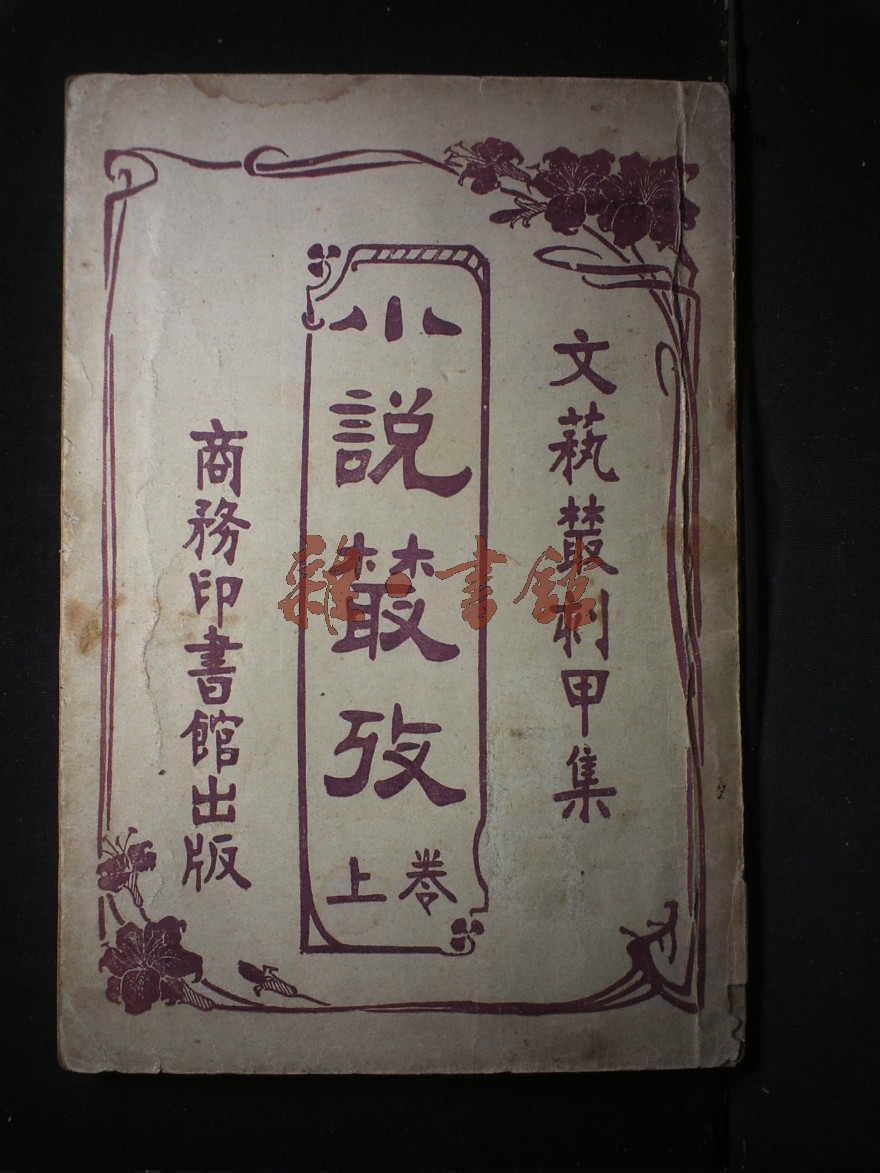 文蓺叢刊甲集
小說叢攷
卷上
商務印書館出版
雜·書館